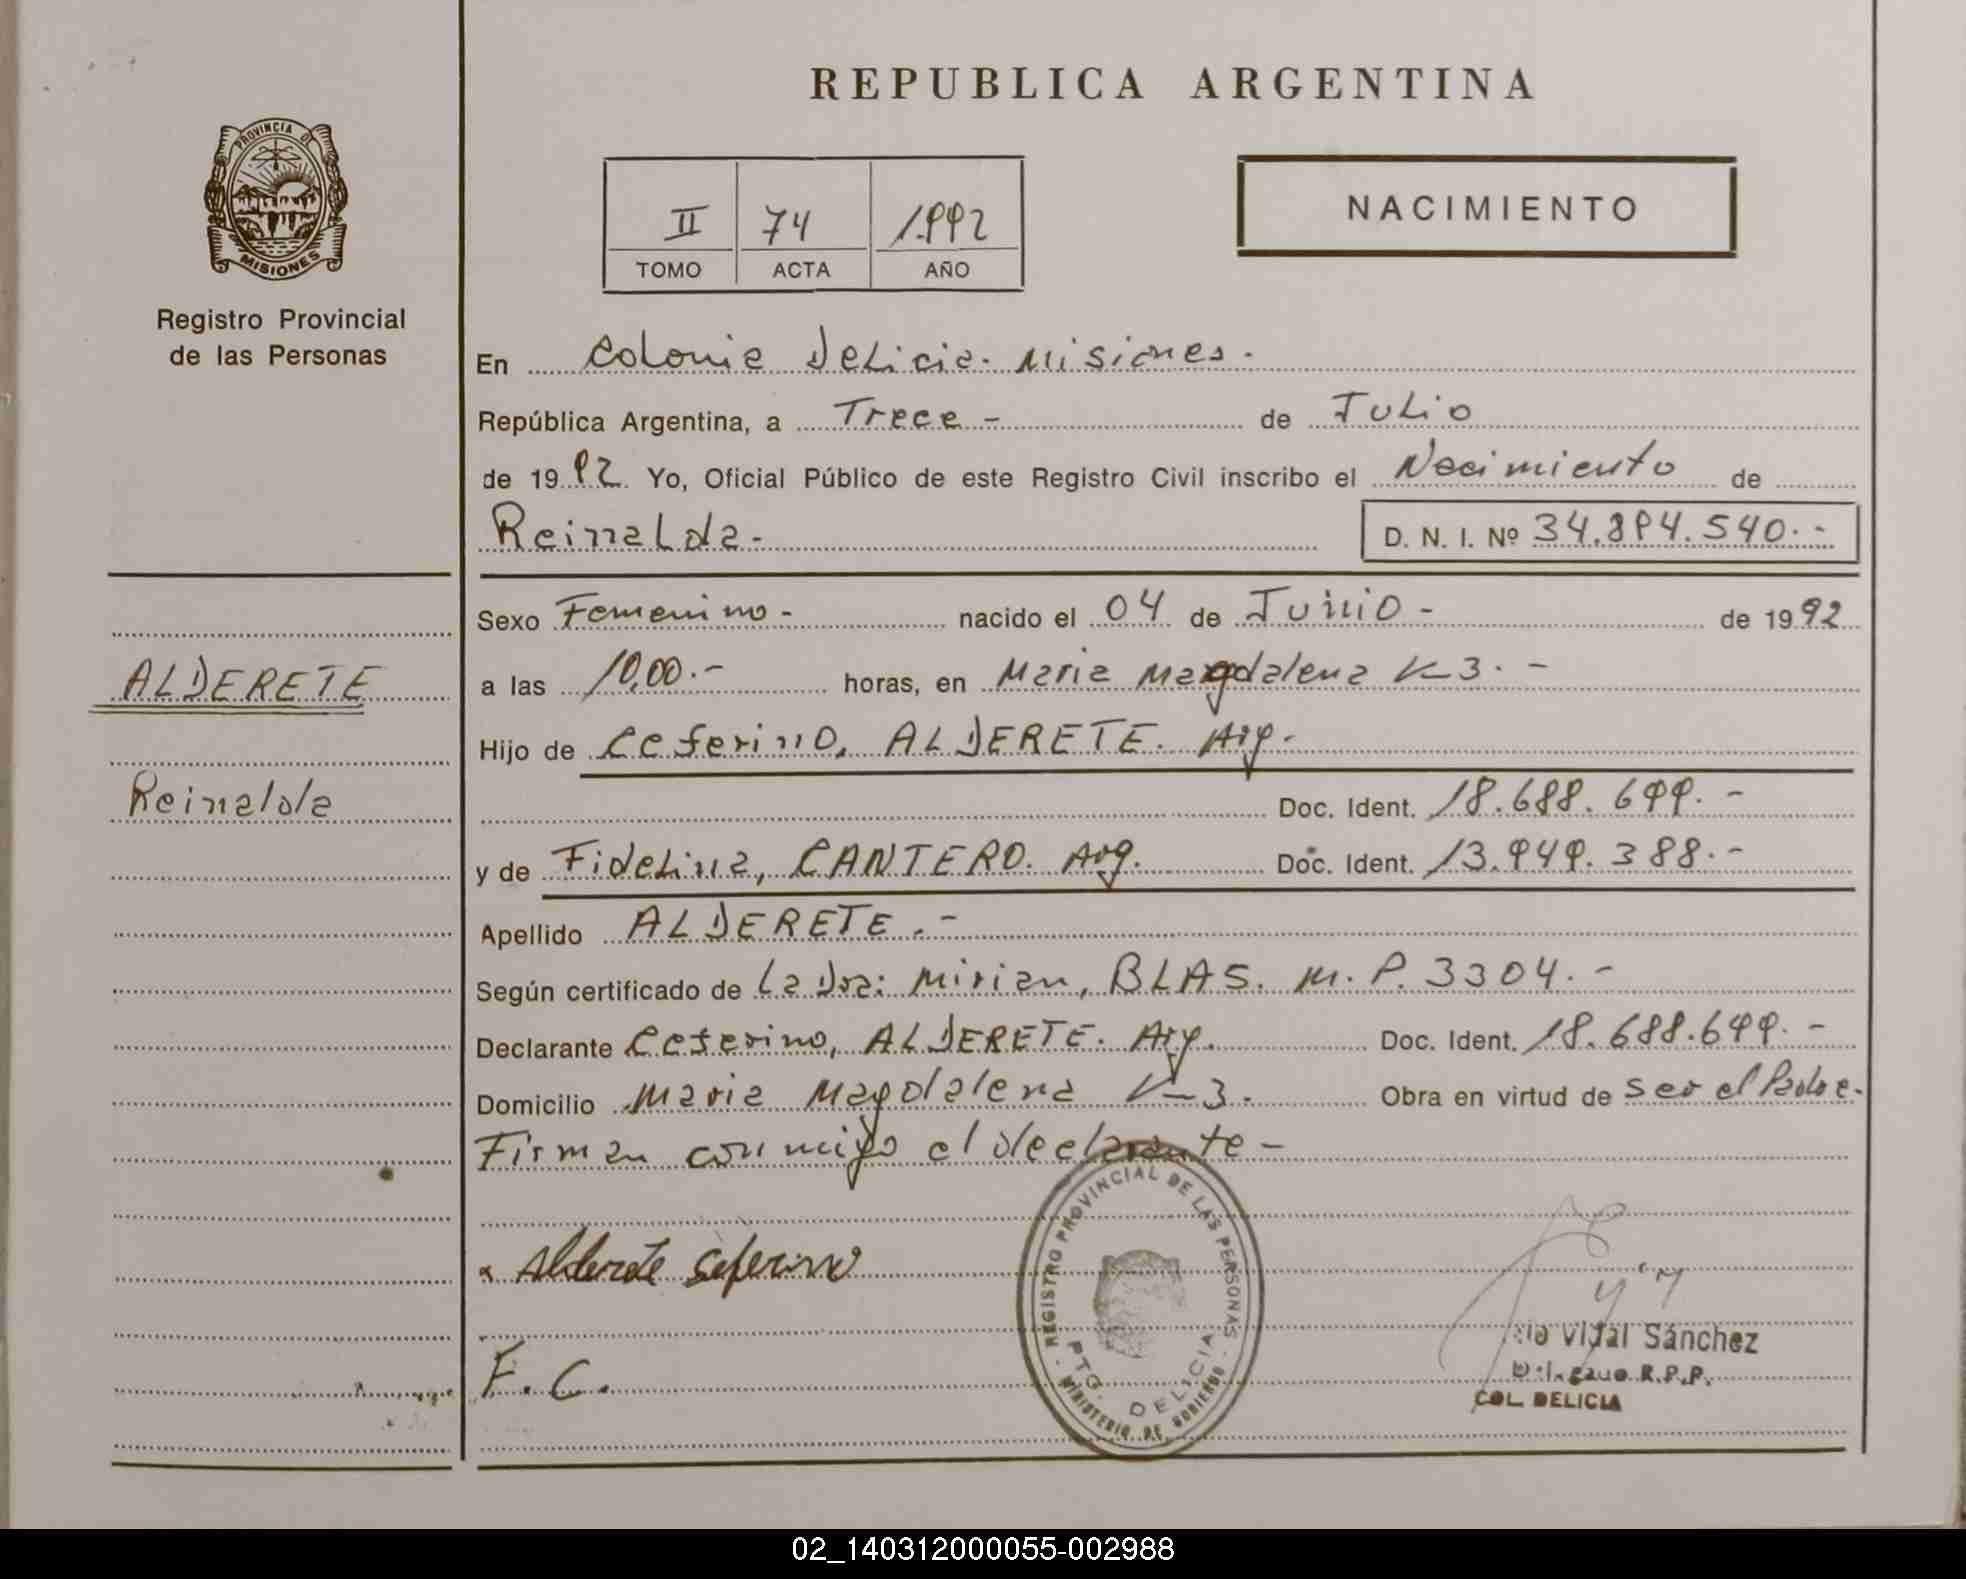 REPUBLICA ARGENTINA
PROVINCIA DE
MISIONES
Registro Provincial
de las Personas
II 74 1.992
TOMO ACTA AÑO
NACIMIENTO
En Colonia Delicia. Misiones.
República Argentina, a Trece - de Julio
de 1992 Yo, Oficial Público de este Registro Civil inscribo el Nacimiento de
Reinalda.- D. N. I. Nº 34.894.540.-
Sexo Femenino - nacido el 04 de Junio - de 1992
ALDERETE
a las 10,00.- horas, en Maria Magdalena K-3.-
Hijo de Ceferino, ALDERETE. Arg.
Reinalda
Doc. Ident. 18.688.699.-
y de Fidelina, CANTERO. Arg. Doc. Ident. 13.949.388.-
Apellido ALDERETE.-
Según certificado de La Dra: Mirian, BLAS. M.P. 3304.-
Declarante Ceferino, ALDERETE. Arg. Doc. Ident. 18.688.699.-
Domicilio Maria Magdalena K-3. Obra en virtud de ser el Padre.
Firman conmigo el declarante -
REGISTRO PROVINCIAL DE LAS PERSONAS
MINISTERIO DE GOBIERNO
PTO. DELICIA
Alderete Seferino
Vidal Sánchez
R.P.P.
COL. DELICIA
F.C.
02_140312000055-002988